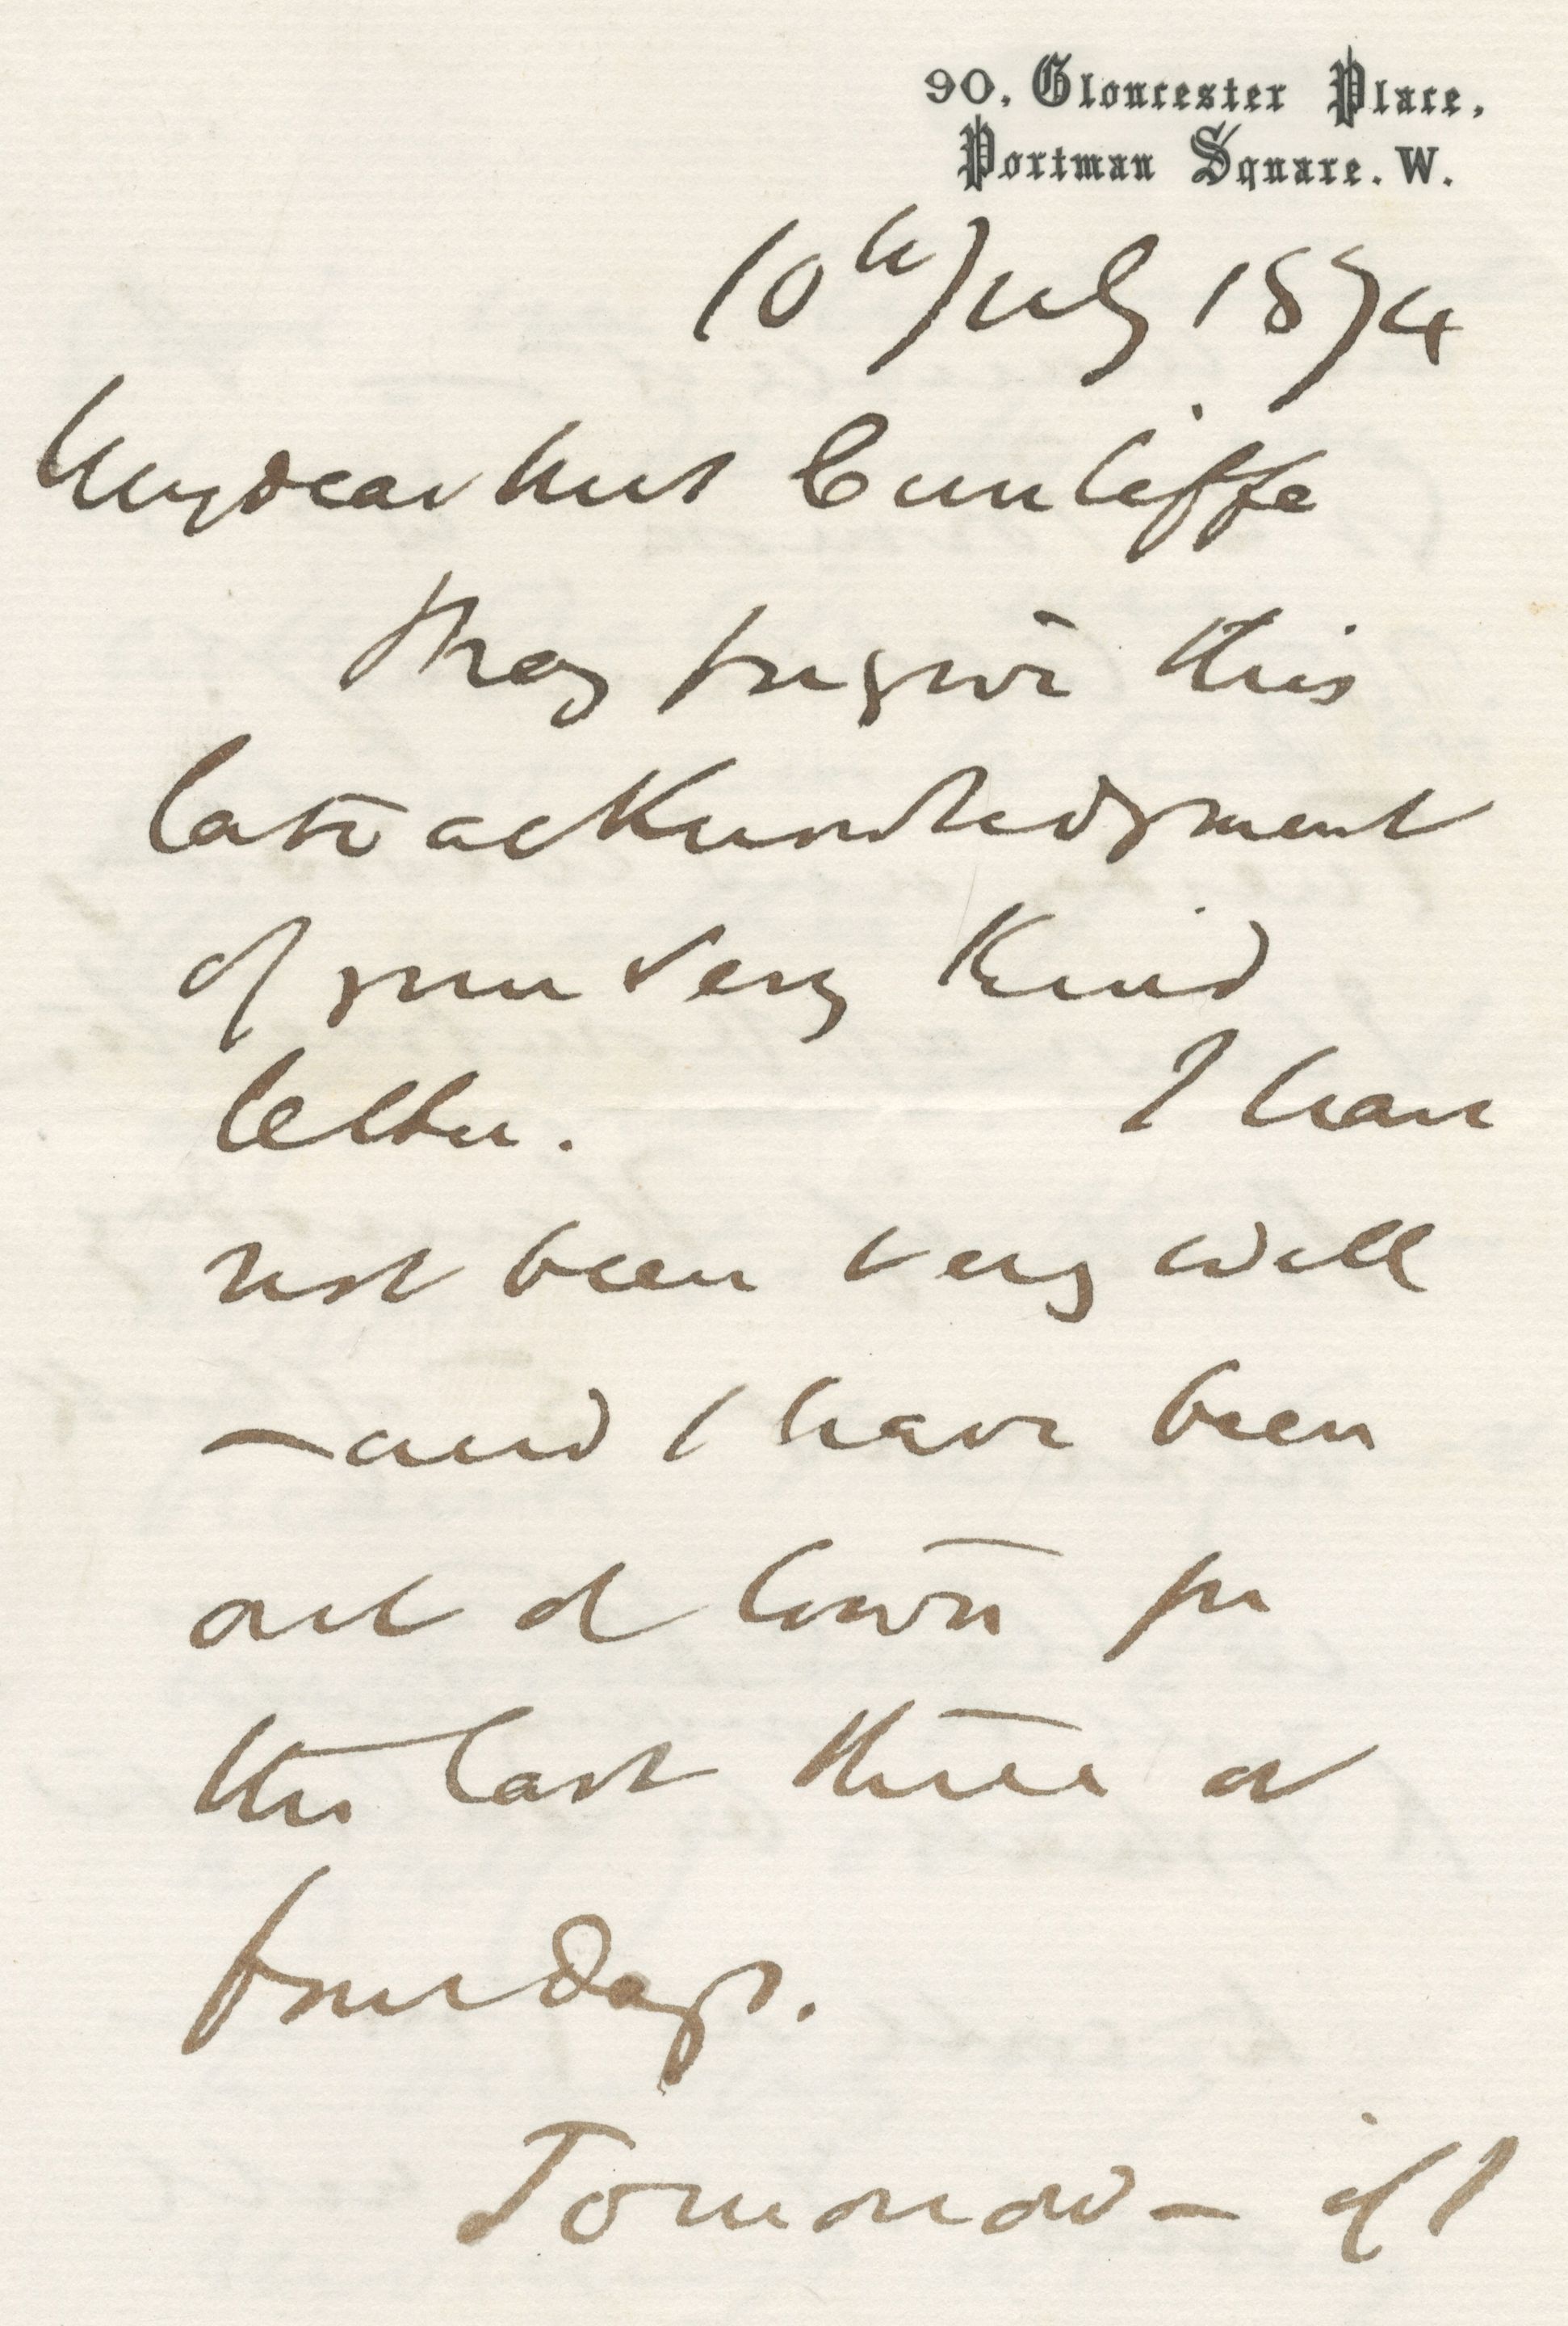 90, Gloucester Place,
Portman Square. W.
10th July 1874
My dear Mrs Cunliffe
Pray forgive this
late acknowledgment
of your very kind
letter. I have
not been very well
– and I have been
out of town for
the last three or
four days.
Tomorrow – if I